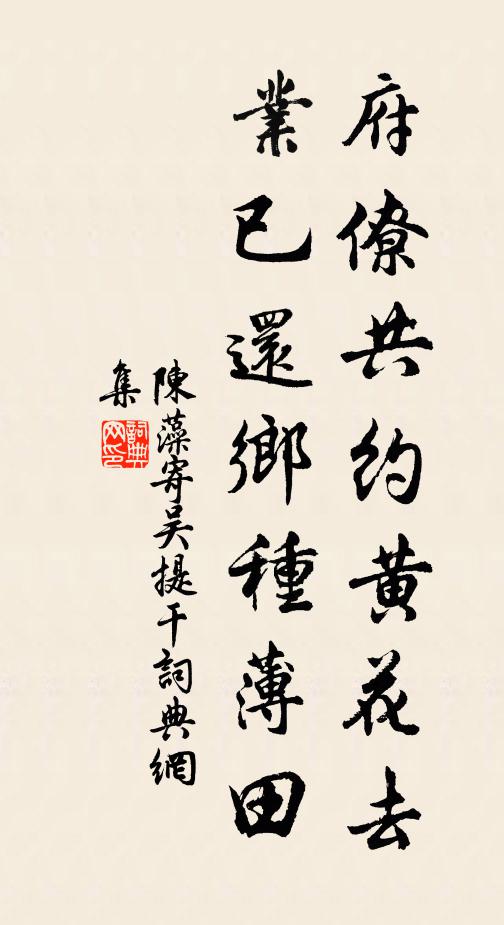 府僚共約黃花去
業已還鄉種薄田
陳藻寄吴提干詞典網
集
詞典网印